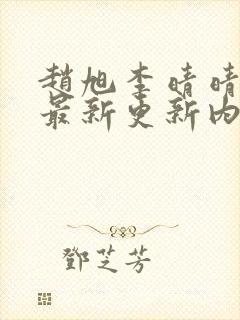 趙旭李晴晴
最新更新內
鄧芝芳